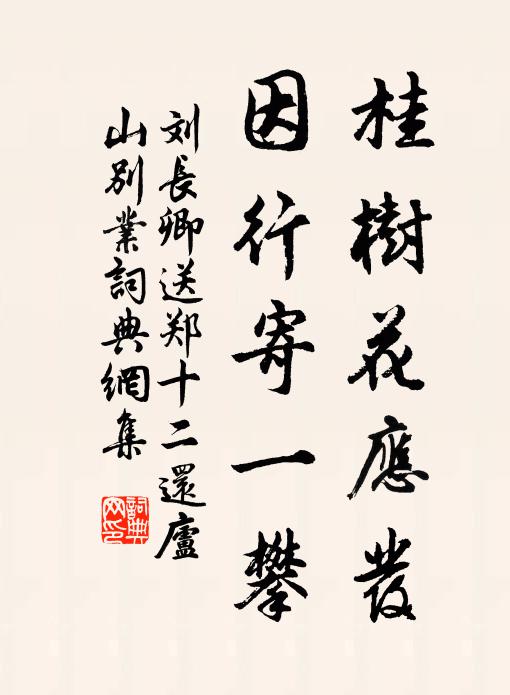 桂樹花應發
因行寄一攀
刘長卿送郑十二還廬
山別業詞典網集
詞典
网印